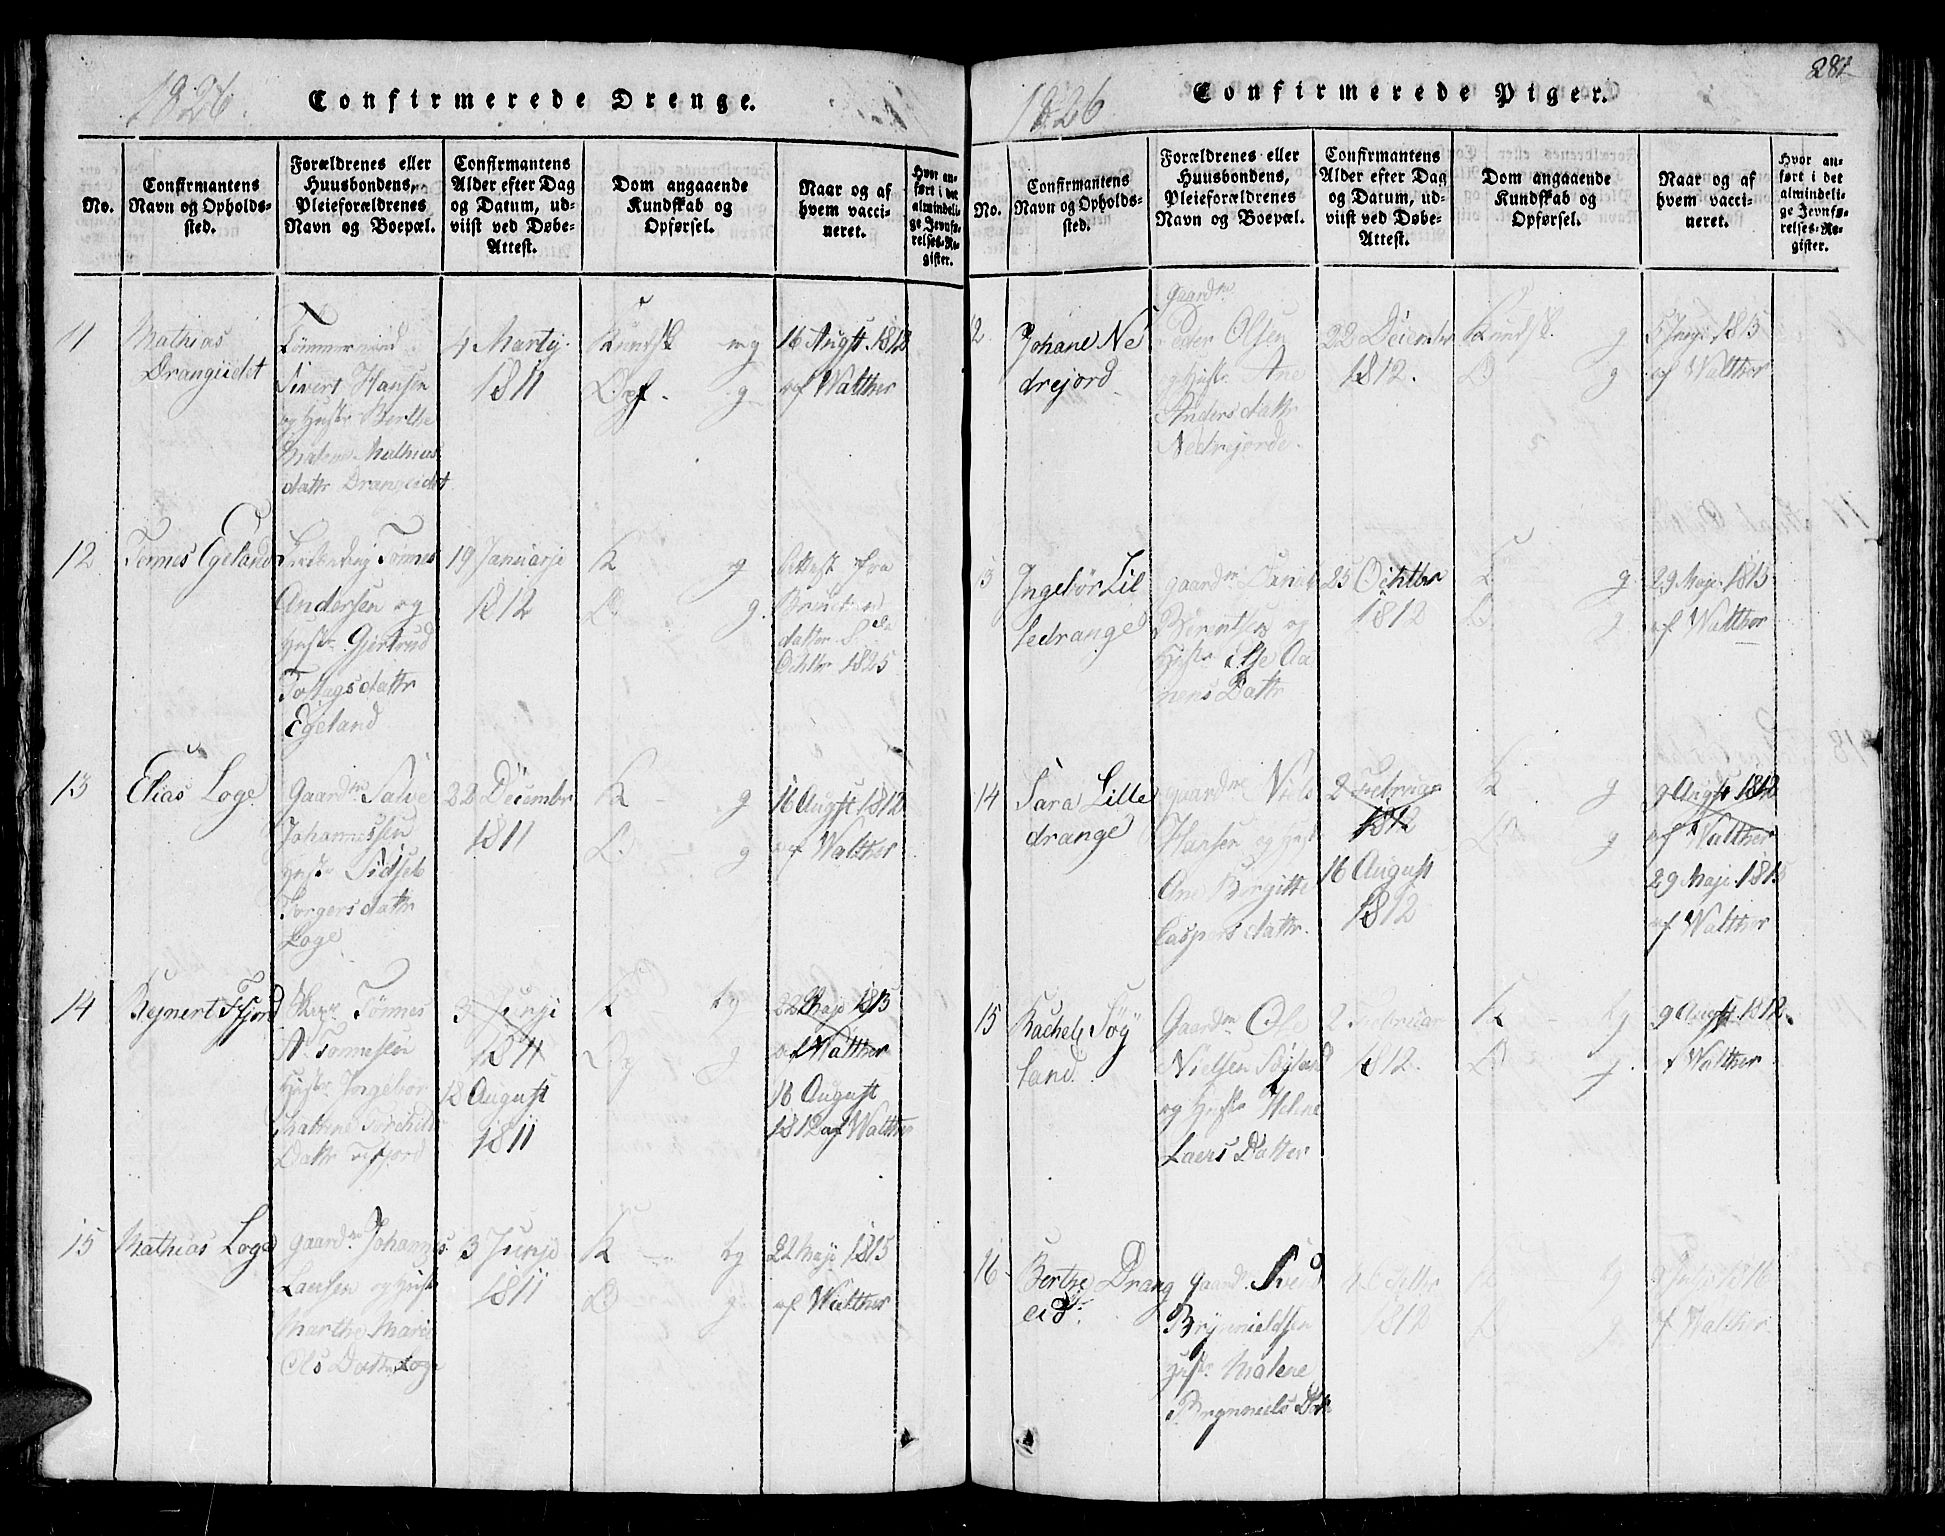 1826
Confirmerede Drenge.
No.
Confirmantens
Navn og Opholds-
sted.
Forældrenes eller
Huusbondens,
Pleieforældrenes
Navn og Boepæl.
Confirmantens
Alder efter Dag
og Datum, ud-
viist ved Døbe-
Attest.
Dom angaaende
Kundskab og
Opførsel.
Naar og af
hvem vacci-
neret.
Hvor an-
ført i det
almindeli-
ge Jevnfø-
relses-Re-
gister.
11
Mathias
Drangeidet
Tømmermd
Sivert Hansen
og Hustr Berthe
Malene Mathias
dattr Drangeidet
4 Martij
1811
Kundsk mg
Opf. g
16 Augst 1812
af Walther
12
Tønnes Egeland
Tønnes
Andersen og
Hustr Giertrud
Tostagsdattr
Egeland
19 Januarji
1812
K g
O g
Attest fra
Octbr 1825
13
Elias Loge
Gaardm Salve
Johannessen
Hustr Sidsel
Torgersdattr
Loge
22 Decembr
1811
K g
O. g
16 Augst 1812
af Walther
14
Rejnert Fjord
Tønnes
Tønnessen
Hustr Ingebor
Datr
3 Junji
1811
18 August
1811
K tg
Og g
22 Maji 1815
af Walther
16 August
1812 af Walther
15
Mathias Loge
gaardm Johannes
Laursen og Hustr
Marthe Marie
Ols Datter Loge
3 Junji
1811
K tg
O g
22 Maji 1815
af Walther
281
1826
Confirmerede Piger.
No.
Confirmantens
Navn og Opholds-
sted.
Forældrenes eller
Huusbondens,
Pleieforældrenes
Navn og Boepæl.
Confirmantens
Alder efter Dag
og Datum, ud-
viist ved Døbe-
Attest.
Dom angaaende
Kundskab og
Opførsel.
Naar og af
hvem vacci-
neret.
Hvor an-
ført i det
almindeli-
ge Jevnfø-
relses-Re-
gister.
2
Johane Ne
drejord
gaardm
Peder Olsen
og Hustr Ane
Andersdattr
Nedrejorde
22 Decembr
1812.
Kundsk. g
O g
1815
af Walther
3
Ingebor Lil
ledrange
gaardm Daniel
Berentsen og
Hustr Else Aa
nens Dattr
25 Octbr
1812
K g
O g
29 Maji 1815
af Walther
14
Sara Lille
drange
gaardm Niels
Hansen og Hustr
Ane Birgitte
Caspersdattr.
2 Februar
1812
16 August
1812
K g
O g
9 Augst 1812
af Walther
29 Maji 1813
af Walther
15
Rachel Søy
land
Gaardm Ole
Nielsen Søyland
og Hustr Helene
Laers Datter
2 Februar
1812.
K tg
O g
9 August 1812.
af Walther
16
Berthe Drang
eid
gaardm Svend
Brynnieldsen
Hustr Malene
Brynniels Dtr
1812
K tg
O g
1816
af Walther